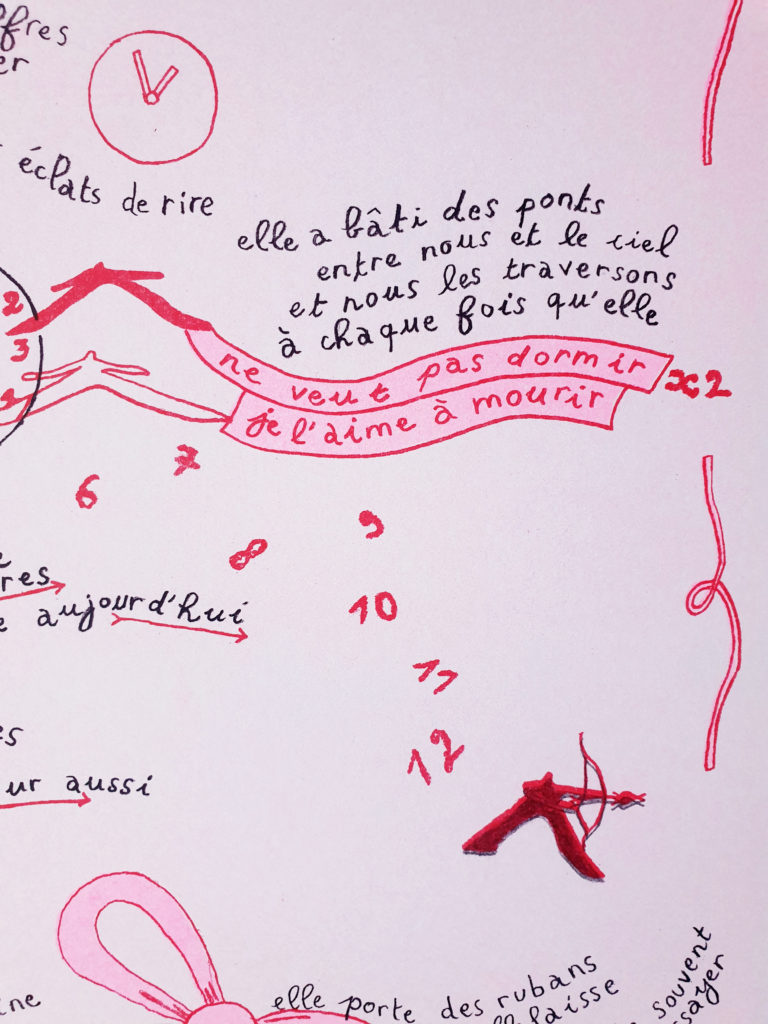 éclats de rire
elle a bâti des ponts
entre nous et le ciel
et nous les traversons
à chaque fois qu'elle
ne veut pas dormir x2
je l'aime à mourir
2
3
6
7
8
9
10
11
12
aujourd'hui
aussi
elle porte des rubans
souvent